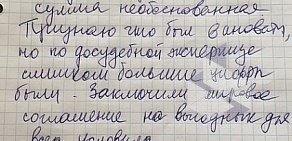 сумма необоснованная
Признаю что был виноват,
но по досудебной экспертизе
слишком большие цифры
были. Заключили мировое
соглашение на выгодных для